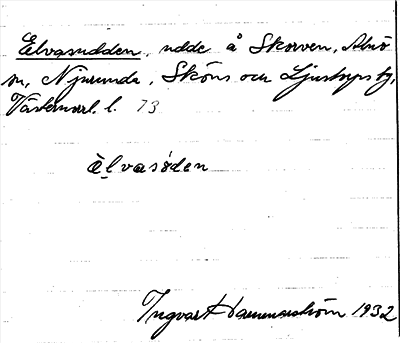 Elvasudden, udde å Skorven, Alnö
sn, Njurunda, Sköns och Ljustorps tg,
Västernorrl. l. 73
èlvasúden
Ingvar Hammarström 1932